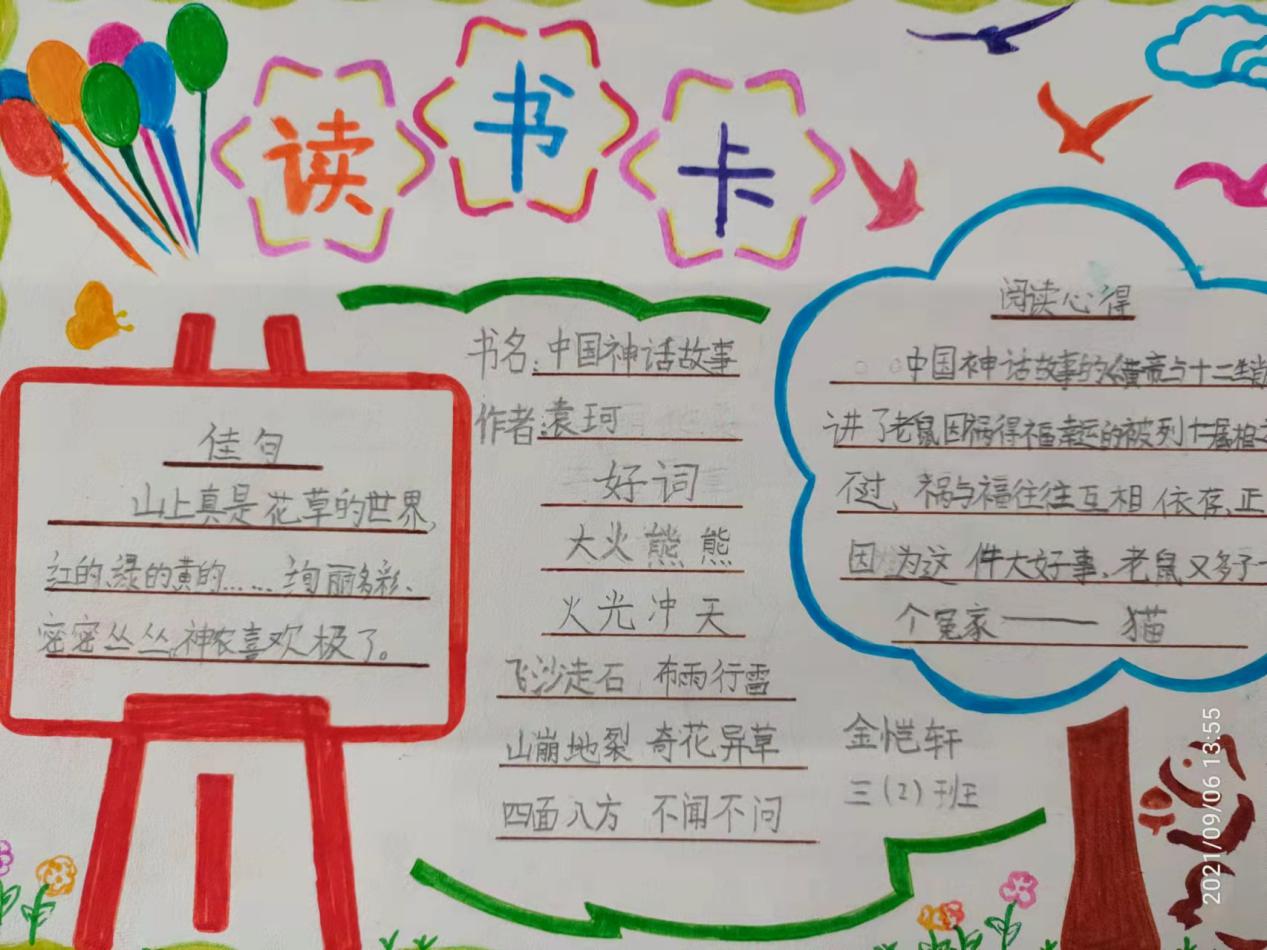 读书卡
佳句
山上真是花草的世界,
红的、绿的黄的……绚丽多彩、
密密丛丛,神农喜欢极了。
书名:中国神话故事
作者:袁珂
好词
大火熊熊
火光冲天
飞沙走石 布雨行雷
山崩地裂 奇花异草
四面八方 不闻不问
阅读心得
中国神话故事的《黄帝与十二生肖
讲了老鼠因祸得福幸运的被列十二属相
不过、祸与福往往互相依存,正
因为这件大好事、老鼠又多了一
个冤家——猫
金恺轩
三(2)班
2021/09/06 13:55